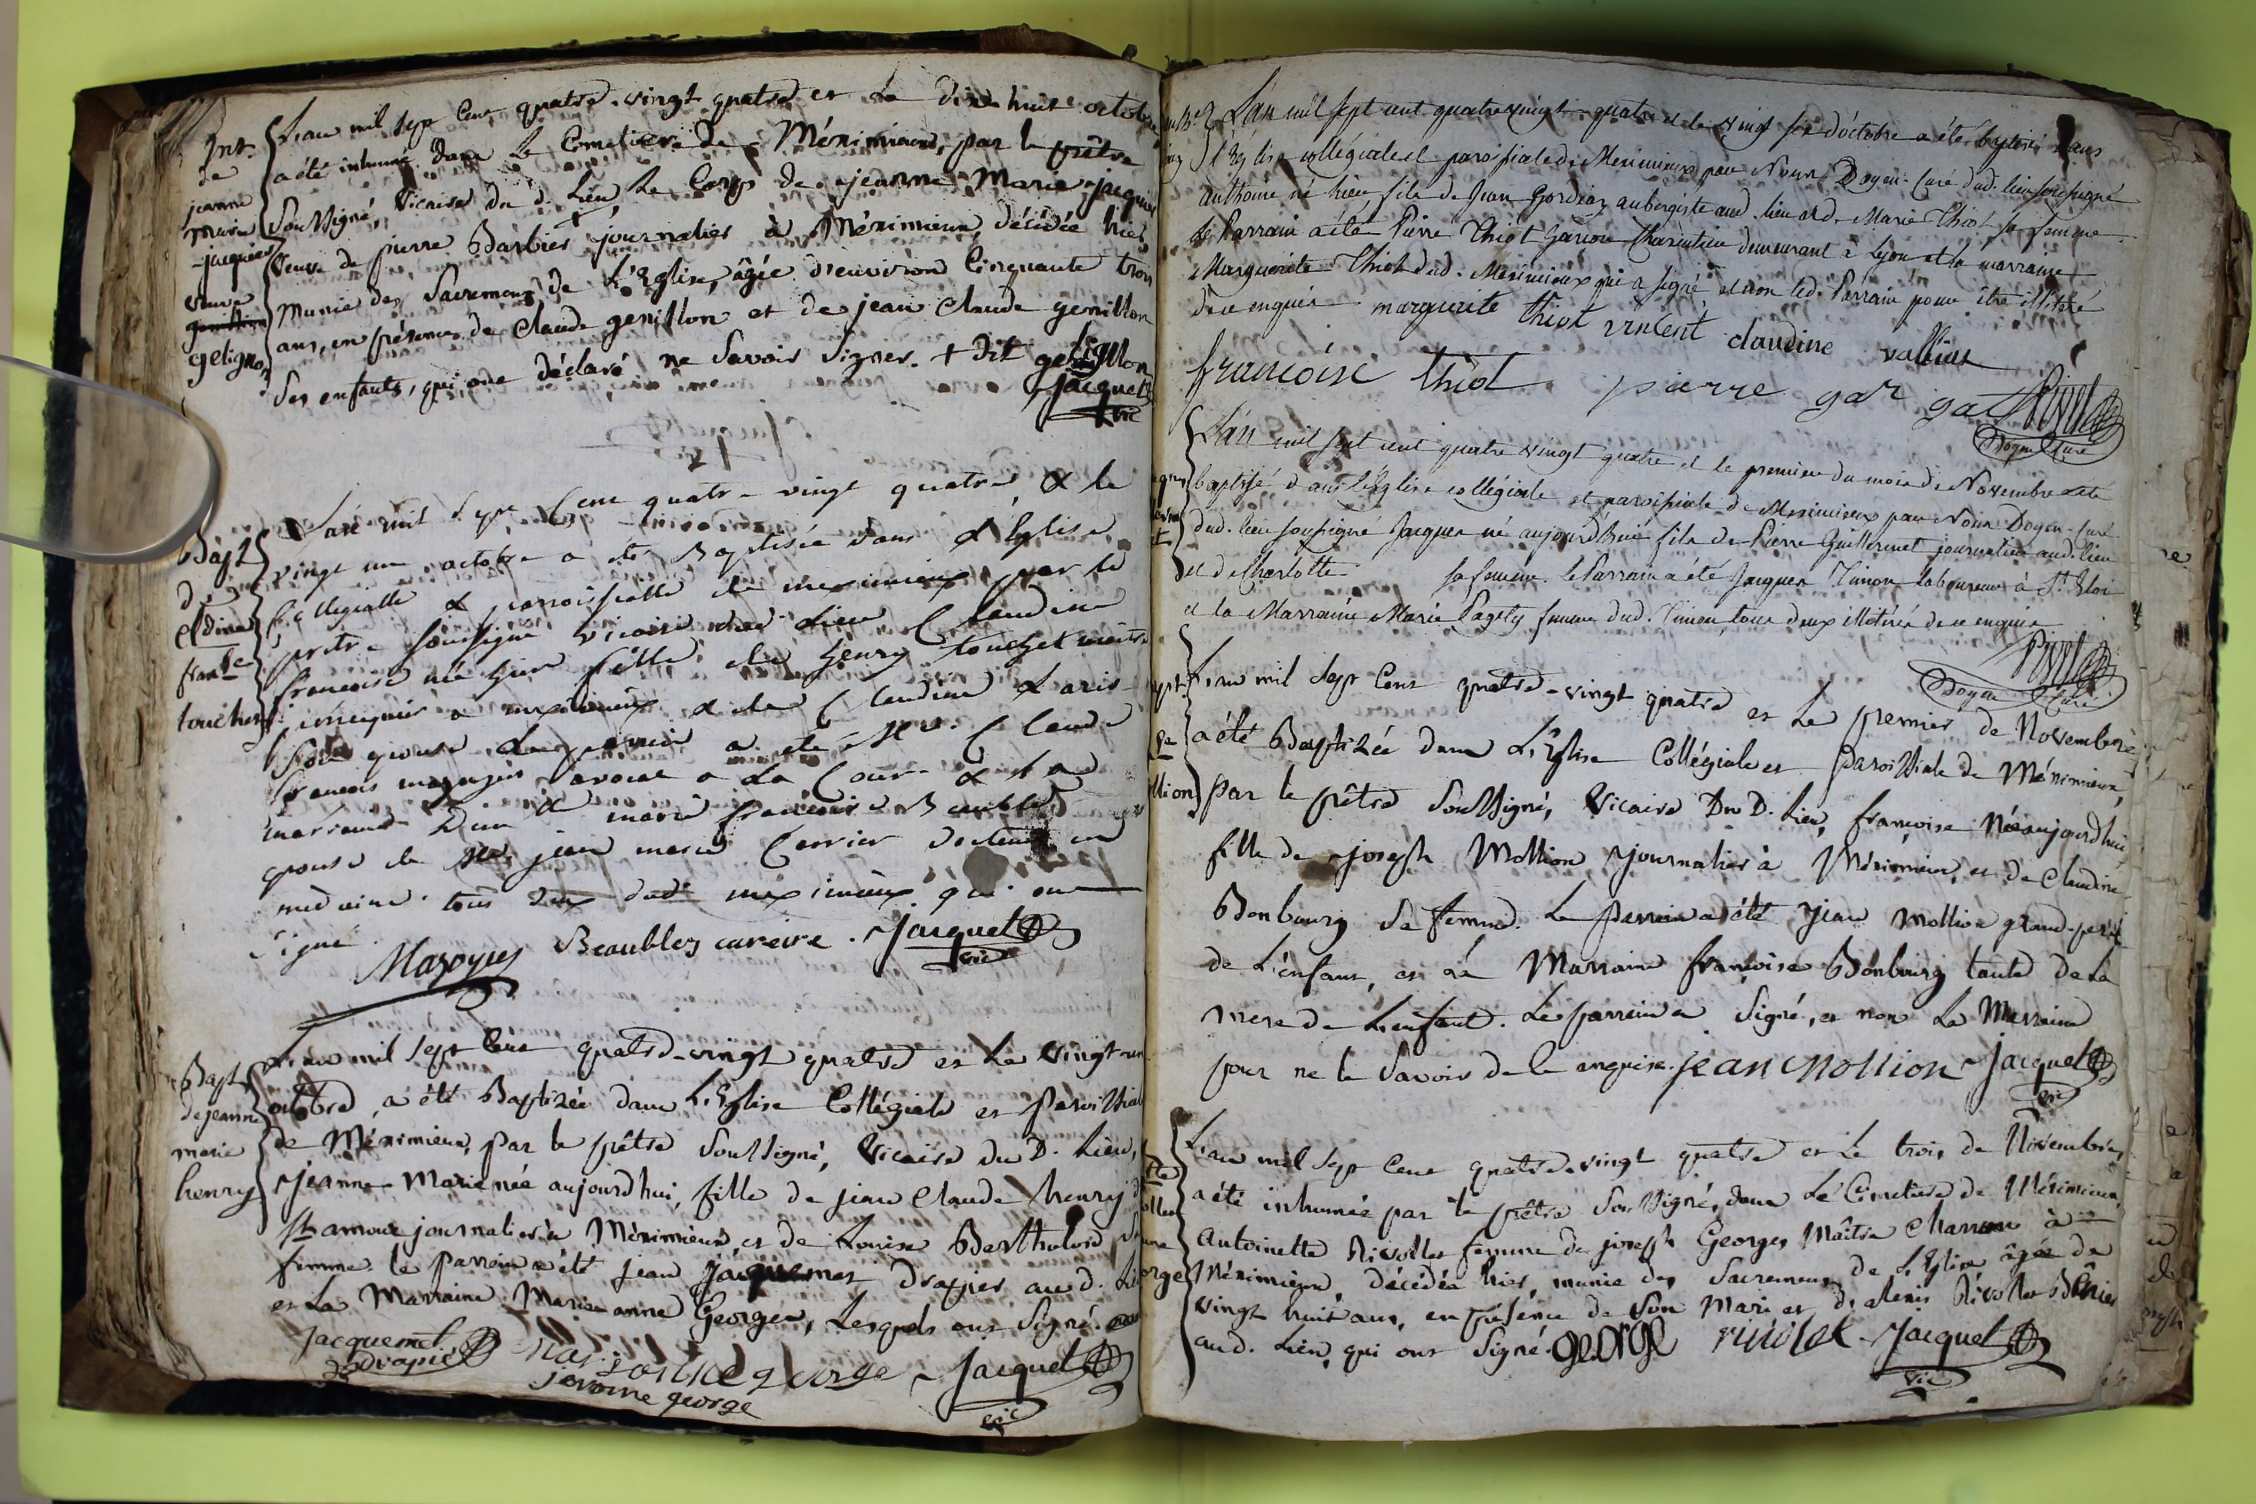 Int.
de
jeanne
marie
jacquier
veuve
geligno
L'an mil sept cent quatre-vingt quatre et le dix huit octobre
a été inhumé dans le Cimetiere de Méximieux, par le prêtre
Soussigné, vicaire du d. Lieu, le Corps de jeanne Marie jacquier
veuve de pierre Barbier journalier à Méximieux, décédée hier,
munie des Sacremens de L'Eglise, âgée d'environ Cinquante trois
ans, en présence de Claude genillon et de jean Claude genillon
Ses enfants, qui ont déclaré ne Savoir Signer. + dit
Jacquet
vic
Bapt
de
Cldine
franse
touchet
L'an mil sept Cent quatre vingt quatre, & le
vingt un octobre a été Baptisée dans L'Eglise
Collegialle & parroissialle de meximieux par le
prêtre soussigné vicaire dud Lieu Claudine
francoise née hier fille de henry touchet maître
a meximieux & de Claudine
Son epouse Le parrein a été Mre. Claude
francois mazoyer avocat a La Cour & La
marraine marie francoise Beaublez
epouse de jean marie Carrier docteur en
médecine. tous deux dudt meximieux qui ont
Signé.
Mazoyer Beaublez careire. Jacquet
vic
Bapt.
de jeanne
marie
henry
L'an mil sept Cent quatre-vingt quatre et le vingt-un
octobre, a été Baptizée dans L'Eglise Collégiale et paroissiale
de Méximieux, par le prêtre Soussigné, Vicaire du D. Lieu,
Jeanne-Marie née aujourd'hui, fille de jean Claude henry
St amour journalier à Méximieux, et de Louise Bertholard Sa
femme le parrain a été jean jacquemet drapier au d. Lieu
et La Marraine Marie anne George, Lesquels ont Signé.
Jacquemet
drapié
george Jacquet
jeromme george
vic
L'an mil sept cent quatre vingt-quatre et le vingt six d'octobre a été baptisé dans
l'église collégiale et paroissiale de Meximieux par Nous Doyen-Curé dud. lieu soussigné
anthoine né hier fils de Jean Gordiaz aubergiste aud. lieu et de Marie Thiot sa femme.
le Parrain a été Pierre Thiot garçon Charpentier demeurant à Lyon et la marraine
Marguerite Thiot dud. Meximieux qui a signé et non led. Parrain pour être illitéré
de ce enquis marguerite thiot vincent claudine vallier
francóise thiot pierre
Doyen Curé
L'an mil sept cent quatre vingt quatre et le premier du mois de Novembre a été
baptisé dans l'Eglise collégiale et paroissiale de Meximieux par Nous Doyen-Curé
dud. lieu soussigné Jacques né aujourd'hui fils de Pierre Guillermet journalier aud. lieu
et de Charlotte sa femme. le Parrain a été Jacques Timon laboureur à St. Eloi
et la Marraine Marie Pagety femme dud. Timon, tous deux illitérés de ce enquis
Doyen Curé
L'an mil sept Cent quatre-vingt quatre et le premier de Novembre
a été Baptizée dans L'Eglise Collégiale et paroissiale de Méximieux,
par le prêtre Soussigné, Vicaire Du D. Lieu, françoise Née aujourd'hui,
fille de joseph Mollion journalier à Méximieux, et de Claudine
Bonbourg Sa femme. Le parrain a été jean mollion grand-pere
de L'enfant, et La Marraine françoise Bonbourg tante de la
mere de L'enfant. Le parrain a Signé, et non La Marraine
pour ne le Savoir de Ce enquise. jean Mollion Jacquet
vic
L'an mil Sept Cent quatre-vingt quatre et le trois de Novembre,
a été inhumée par le prêtre Soussigné, dans Le Cimetiere de Méximieux,
Antoinette Rivollet femme de joseph George, Maître Charron à
Méximieux, décédée hier, munie des Sacremens de L'Eglise âgée de
vingt huit ans, en présence de Son Mari et d'alexis Rivollet
aud. Lieu, qui ont Signé. george rivolet Jacquet
vic